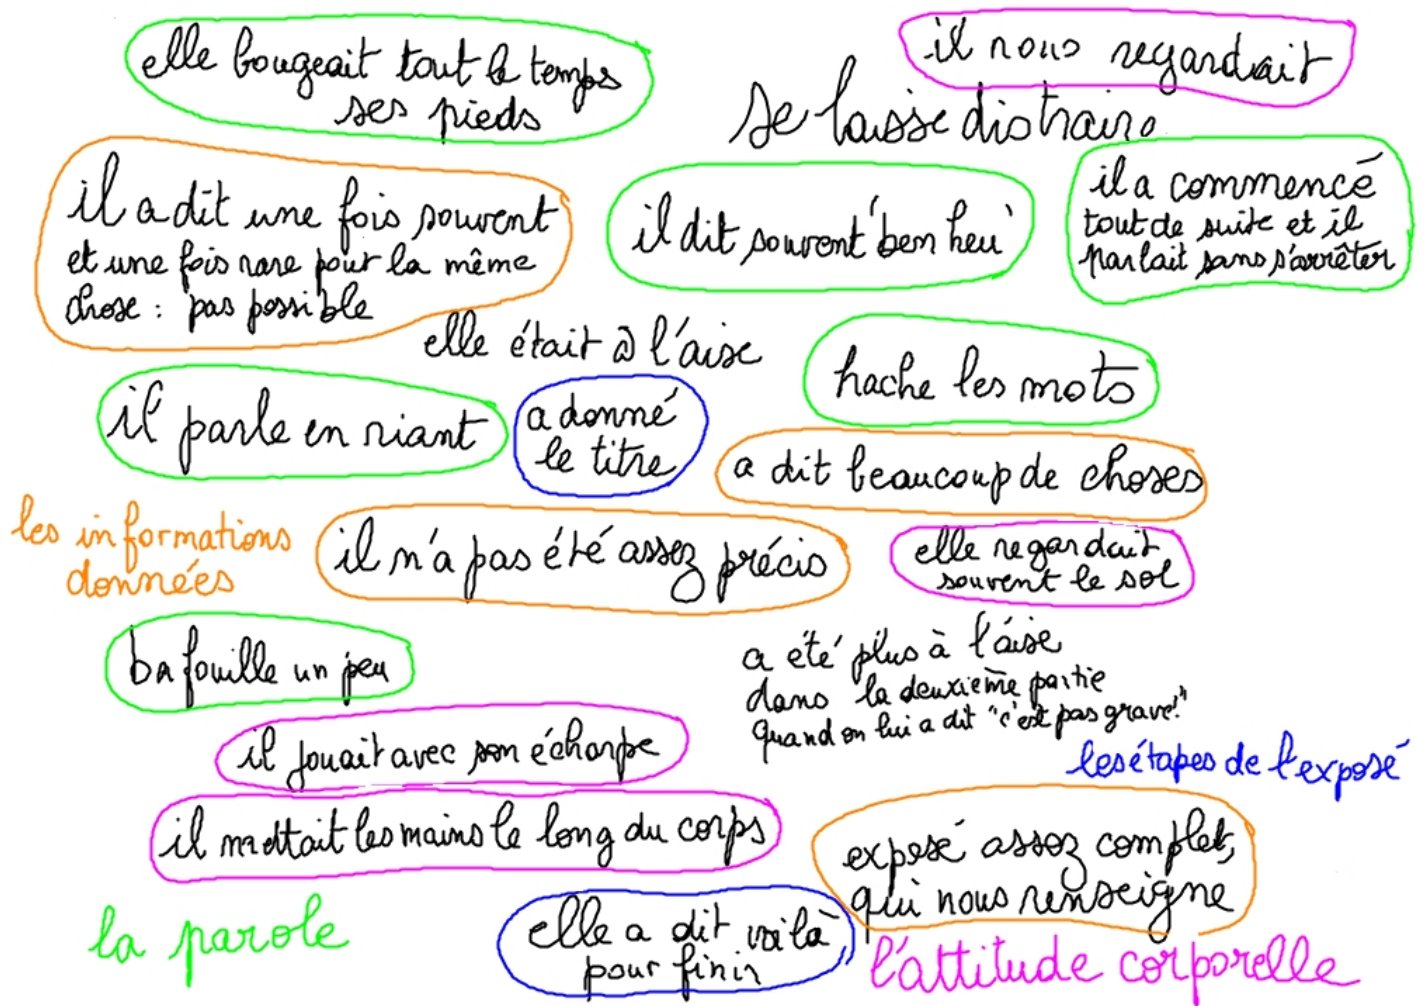 elle bougeait tout le temps
ses pieds
il nous regardait
se laisse distraire
il a dit une fois souvent
et une fois rare pour la même
chose : pas possible
il dit souvent 'ben heu'
il a commencé
tout de suite et il
parlait sans s'arrêter
elle était à l'aise
hache les mots
il parle en riant
a donné
le titre
a dit beaucoup de choses
les informations
données
il n'a pas été assez précis
elle regardait
souvent le sol
bafouille un peu
a été plus à l'aise
dans la deuxième partie
quand on lui a dit "c'est pas grave!"
il jouait avec son écharpe
les étapes de l'exposé
il mettait les mains le long du corps
exposé assez complet,
qui nous renseigne
la parole
elle a dit voilà
pour finir
l'attitude corporelle